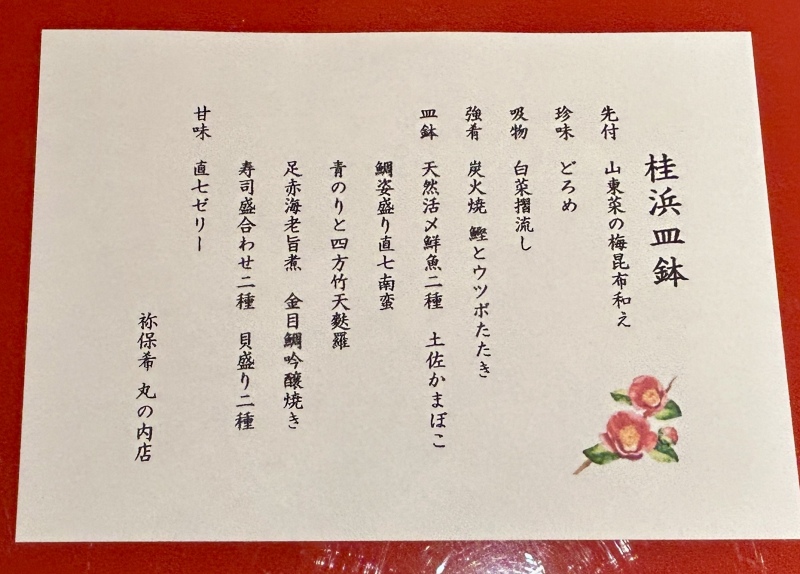 桂浜皿鉢
先付 山東菜の梅昆布和え
珍味 どろめ
吸物 白菜摺流し
強肴 炭火焼 鰹とウツボたたき
皿鉢 天然活〆鮮魚二種 土佐かまぼこ
鯛姿盛り直七南蛮
青のりと四方竹天麩羅
足赤海老旨煮 金目鯛吟醸焼き
寿司盛合わせ二種 貝盛り二種
甘味 直七ゼリー
祢保希 丸の内店